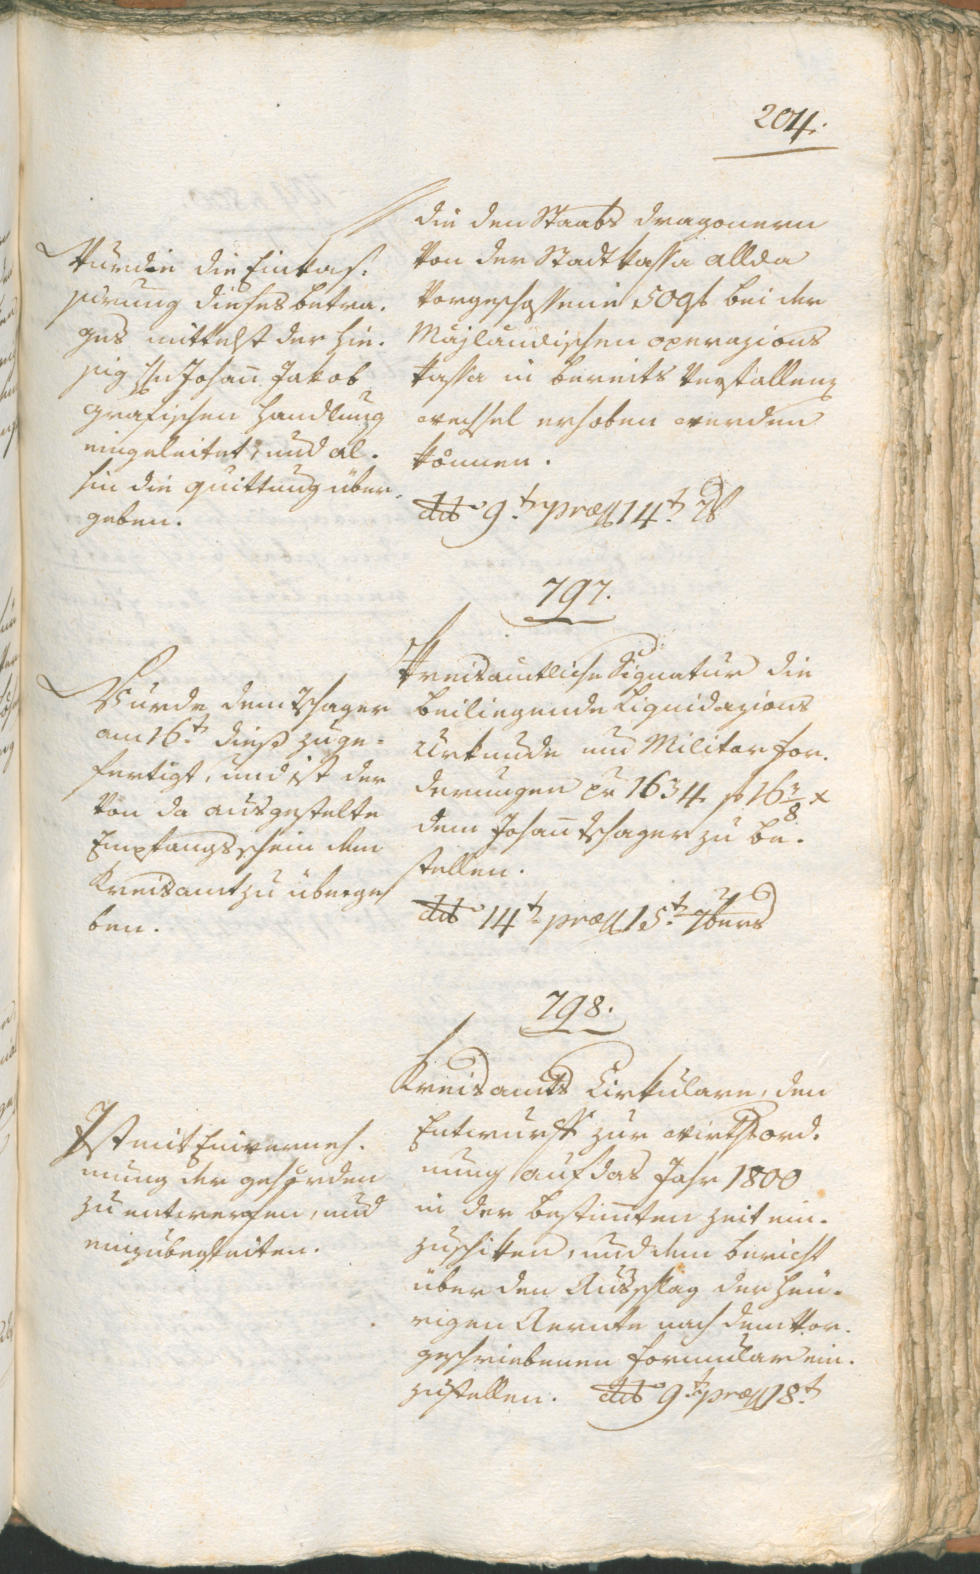 204.
die den Staabs dragonern
von der Stadt kassa allda
vorgeschossenen 50 fl bei der
Mayländischen operazions
kassa in bereits verfallenen
wechsel erhoben werden
können.
dto 9t. præs 14t. 7b
Wurde die Einkas-
sirung dieses betra-
ges mittelst der hie-
sig Johann Jakob
grafischen Handlung
eingeleitet, und al-
hin die quittung über-
geben.
797.
Kreisamtliche Signatur die
beiliegende Liquidazions
Urkunde und Militar for-
derungen pr 1634 f 16 3/8 x
dem Johann Tschager zu be-
stellen.
dto 14t. præs 15t. 7bers
Wurde dem Tschager
am 16t. dieß zuge-
fertigt, und ist der
von da ausgestelte
Empfangsschein dem
Kreisamt zu überge-
ben.
798.
Kreisamts Cirkulare, den
Entwurff zur wirthsord-
nung auf das Jahr 1800
in der bestimten zeit ein-
zuschiken, und dem bericht
über den Ausschlag der heu-
rigen Aernte nach dem vor-
geschriebenen formular ein-
zustellen. dto 9t. præs 18t
Ist mit Einverneh-
mung der gehörden
zu entwerfen, und
einzubegleiten.